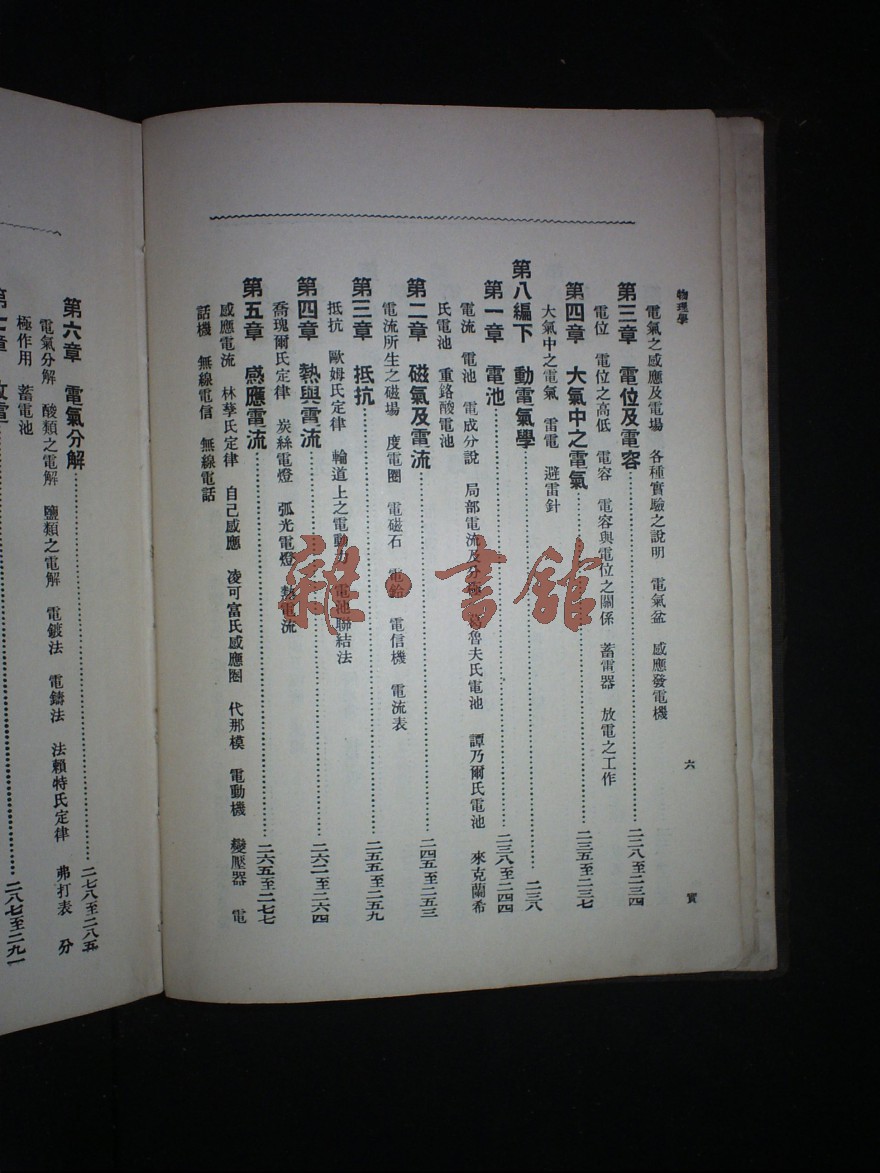 物理學 六 實
電氣之感應及電場 各種實驗之說明 電氣盆 感應發電機
第三章 電位及電容 二二八至二三四
電位 電位之高低 電容 電容與電位之關係 蓄電器 放電之工作
第四章 大氣中之電氣 二三五至二三七
大氣中之電氣 雷電 避雷針
第八編下 動電氣學 二三八
第一章 電池 二三八至二四四
電流 電池 電成分說 局部電流及分極 葛魯夫氏電池 譚乃爾氏電池 來克蘭希
氏電池 重鉻酸電池
第二章 磁氣及電流 二四五至二五三
電流所生之磁場 度電圈 電磁石 電鈴 電信機 電流表
第三章 抵抗 二五五至二五九
抵抗 歐姆氏定律 輪道上之電動力 電池聯結法
第四章 熱與電流 二六二至二六四
喬瑰爾氏定律 炭絲電燈 弧光電燈 熱電流
第五章 感應電流 二六五至二七七
感應電流 林孳氏定律 自己感應 凌可富氏感應圈 代那模 電動機 變壓器 電
話機 無線電信 無線電話
第六章 電氣分解 二七八至二八五
電氣分解 酸類之電解 鹽類之電解 電鍍法 電鑄法 法賴特氏定律 弗打表 分
極作用 蓄電池
第七章 放電 二八七至二九一
雜·書館